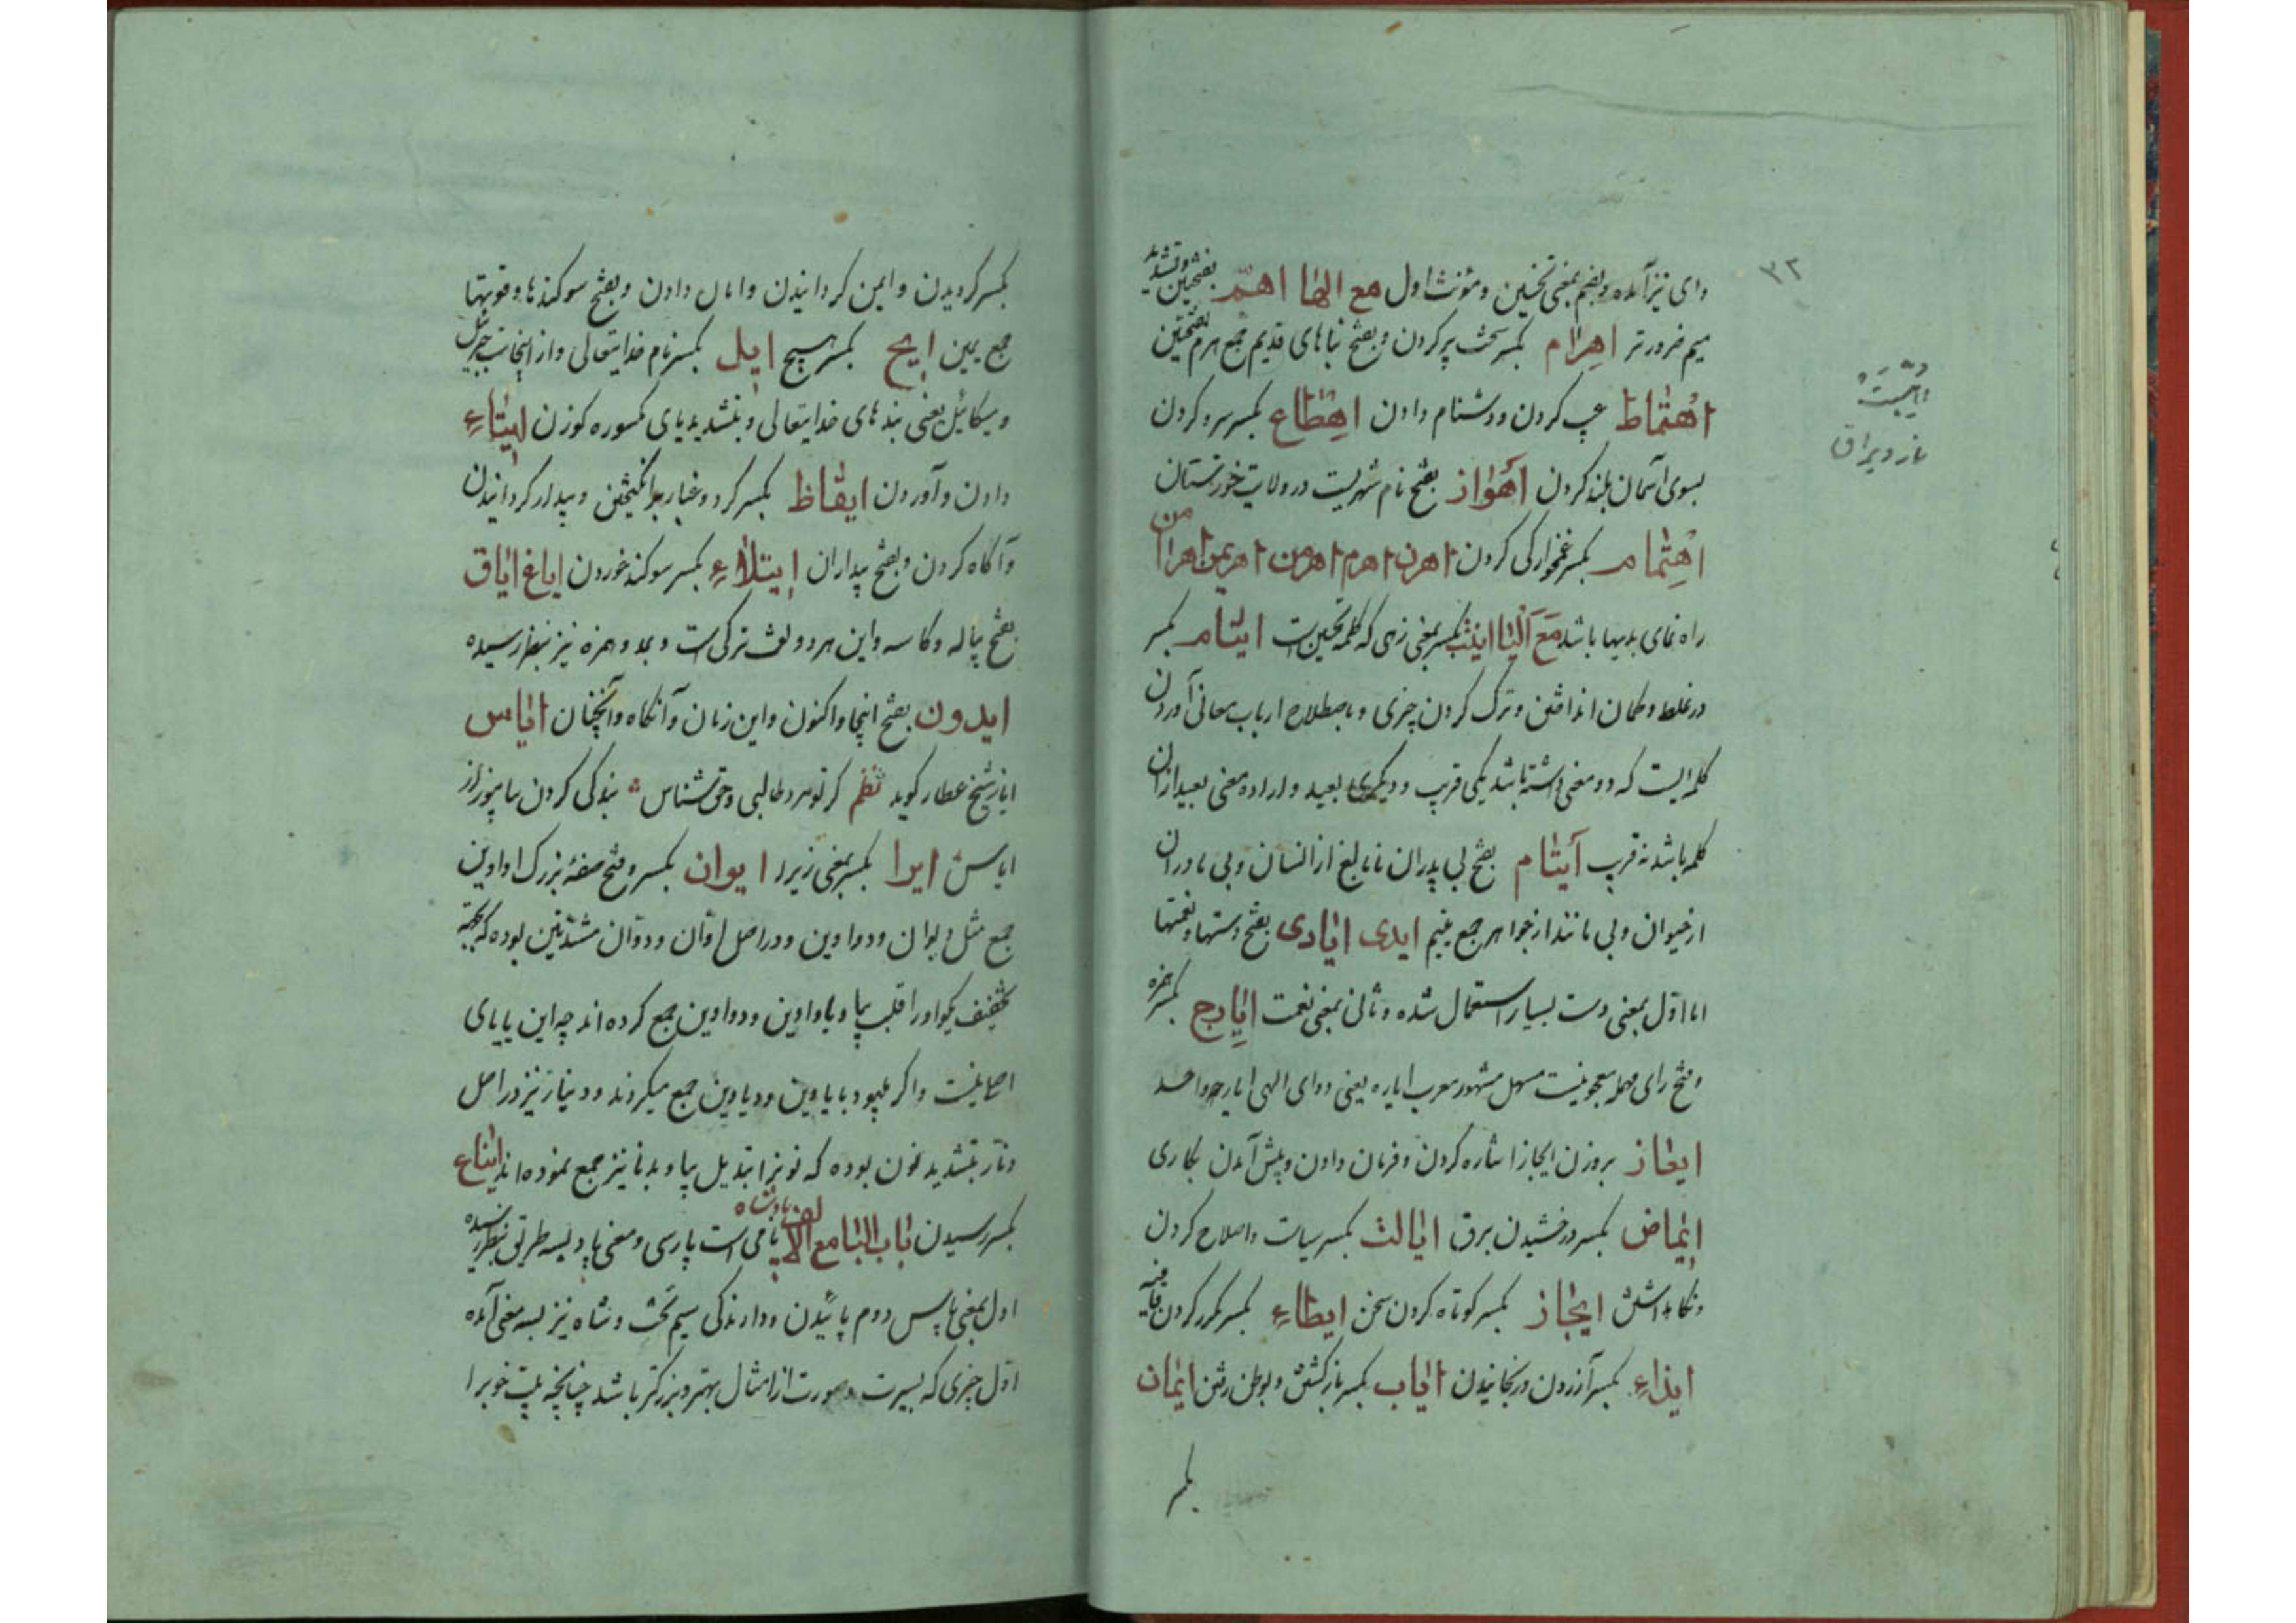 وای نیز آمده و بضم بمعنی نخستین و مؤنث اول مع الها اهمّ بفتحین و تشدید
میم ضرورتر اهرام بکسر سخت پر کردن و بفتح بناهای قدیم جمع هرم بفتحتین
اهتماط عیب کردن و دشنام دادن اهطاع بکسر سرو کردن
بسوی آسمان بلند کردن اهواز بفتح نام شهریست در ولایت خوزستان
اهتمام بکسر غمخوارکی کردن اهرن اهرم اهرمن اهریمن اهرامن
راه نمای بدیها باشد مع الیا ایث بکسر بمعنی زهی که کلمه تحسین است ایتام بکسر
در غلط و کمان انداختن و ترک کردن چیزی و باصطلاح ارباب معانی آوردن
کلمه ایست که دو معنی داشته باشد یکی قریب و دیکری بعید و اراده معنی بعید از ان
کلمه باشد نه قریب ایتام بفتح بی پدران نابالغ از انسان و بی مادران
از حیوان و بی مانند از جواهر جمع یتیم ایدی ایادی بفتح دستها و نعمتها
اما اول بمعنی دست بسیار استعمال شده و ثانی بمعنی نعمت ایارج بکسر همزه
و فتح رای مهمله معجونیست مسهل مشهور معرب ایاره یعنی دوای الهی ایارجه واحد
ایعاز بروزن ایجاز اشاره کردن و فرمان دادن و پیش آمدن بکاری
ایماض بکسر درخشیدن برق ایالت بکسر سیاست و اصلاح کردن
و نکاهداشتن ایجاز بکسر کوتاه کردن سخن ایطاء بکسر مکرر کردن قافیه
ایذاء بکسر آزردن و رنجانیدن ایاب بکسر بازکشتن و بوطن رفتن ایمان
بکسر
۳۲
بکسر کرویدن و ایمن کردانیدن و امان دادن و بفتح سوکندها و قوتها
جمع یمین ایح بکسر هیچ ایل بکسر نام خدایتعالی و از اینجاست جبرئیل
و میکائیل یعنی بندهای خدایتعالی و بتشدید یای مکسوره کوزن ایتاء
دادن و آوردن ایقاظ بکسر کرد و غبار برانکیختن و بیدار کردانیدن
و آکاه کردن و بفتح بیداران ایتلاء بکسر سوکند خوردن ایاغ ایاق
بفتح پیاله و کاسه و این هر دو لغت ترکی است و بمد و همزه نیز بنظر رسیده
ایدون بفتح اینجا و اکنون و این زمان و آنکاه و آنچنان ایاس
ایاز شیخ عطار کوید نظم کر تو مرد طالبی و حق شناس بندکی کردن بیاموز از
ایاس ایرا بکسر بمعنی زیرا ایوان بکسر و فتح صفهٔ بزرک اواوین
جمع مثل دیوان و دواوین و در اصل اوّان و دوّان مشددتین بوده که بجهة
تخفیف یکواو را قلب بیا و باواوین و دواوین جمع کرده اند چه این یا یای
اصلی نیست و اکر میبود بایاوین و دیاوین جمع میکردند و دینار نیز در اصل
دنّار بتشدید نون بوده که نونرا تبدیل بیا و بدنانیر جمع نموده اند ایناع
بکسر رسیدن باب البا مع الالف پادشاه نامی است پارسی و معنی پاد بسه طریق بنظر رسیده
اول بمعنی پاس دوم پائیدن و دارندکی سیم تخت و شاه نیز بسه معنی آمده
اول چیزی که بسیرت و صورت از امثال بهتر و بزرکتر باشد چنانچه بیت خوبرا